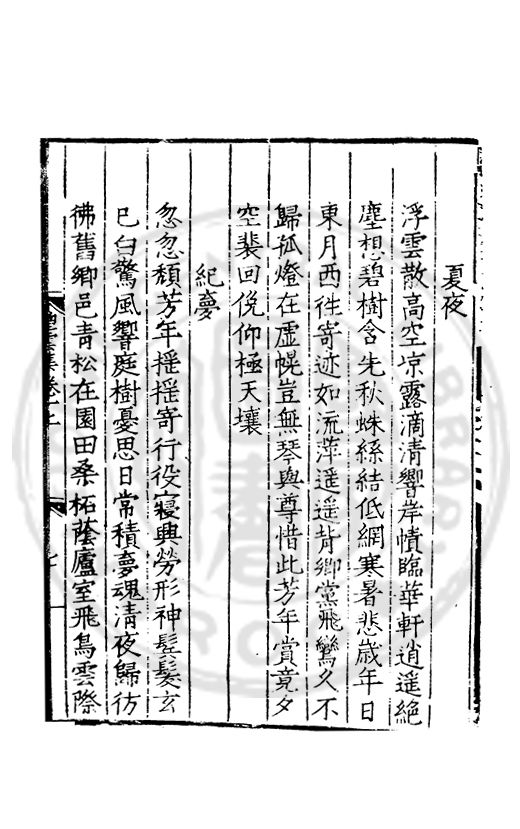 夏夜
浮雲散高空凉露滴清響岸幘臨華軒逍遥絶
塵想碧樹含先秋蛛絲結低網寒暑悲歲年日
東月西徃寄迹如流萍遥遥背鄉黨飛鸞久不
歸孤燈在虚幌豈無琴與尊惜此芳年賞竟夕
空裴回俛仰極天壤
紀夢
忽忽頽芳年揺揺寄行役寢興勞形神鬂髮玄
已白驚風響庭樹憂思日常積夢魂清夜歸彷
彿舊鄉邑青松在園田桑柘蔭廬室飛鳥雲際
集卷上
七